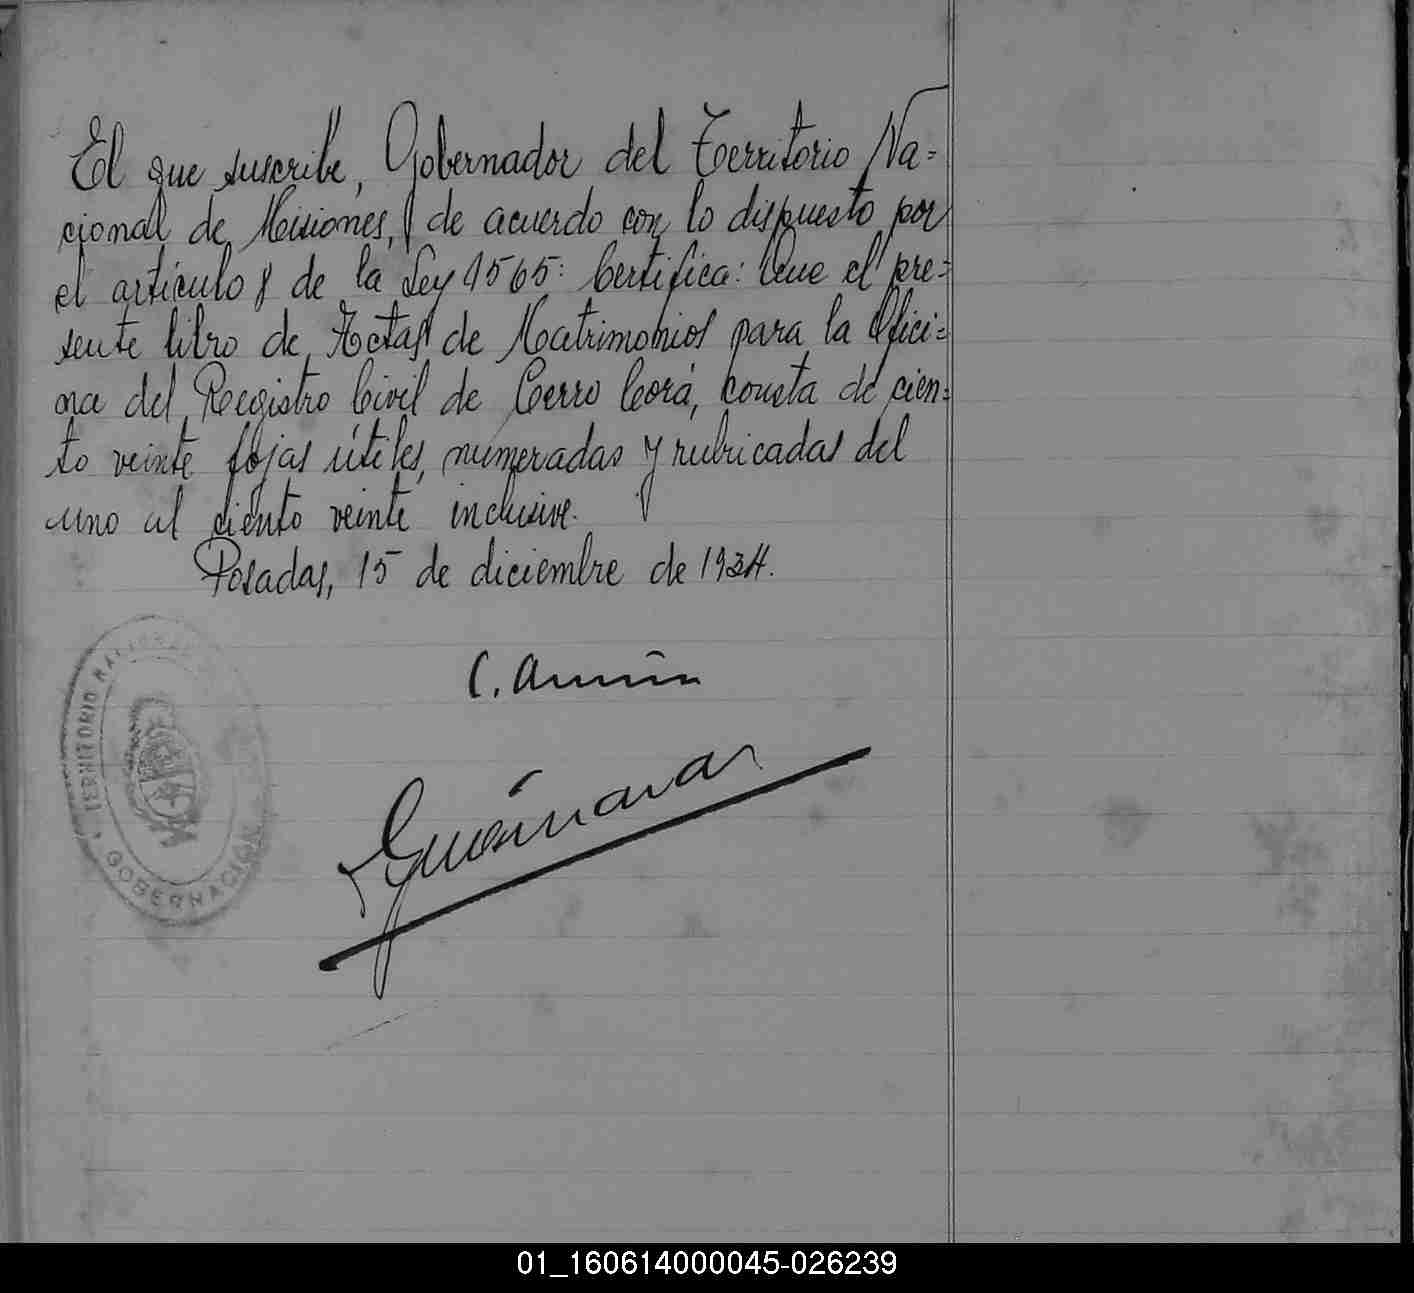 El que suscribe, Gobernador del Territorio Na=
cional de Misiones, de acuerdo con lo dispuesto por
el artículo 8 de la Ley 1565: Certifica: Que el pre=
sente libro de Actas de Matrimonios para la Ofici=
na del Registro Civil de Cerro Corá, consta de cien=
to veinte fojas útiles, numeradas y rubricadas del
uno al ciento veinte inclusive.
Posadas, 15 de diciembre de 1934.
C.
TERRITORIO NACIONAL
GOBERNACIÓN
01_160614000045-026239